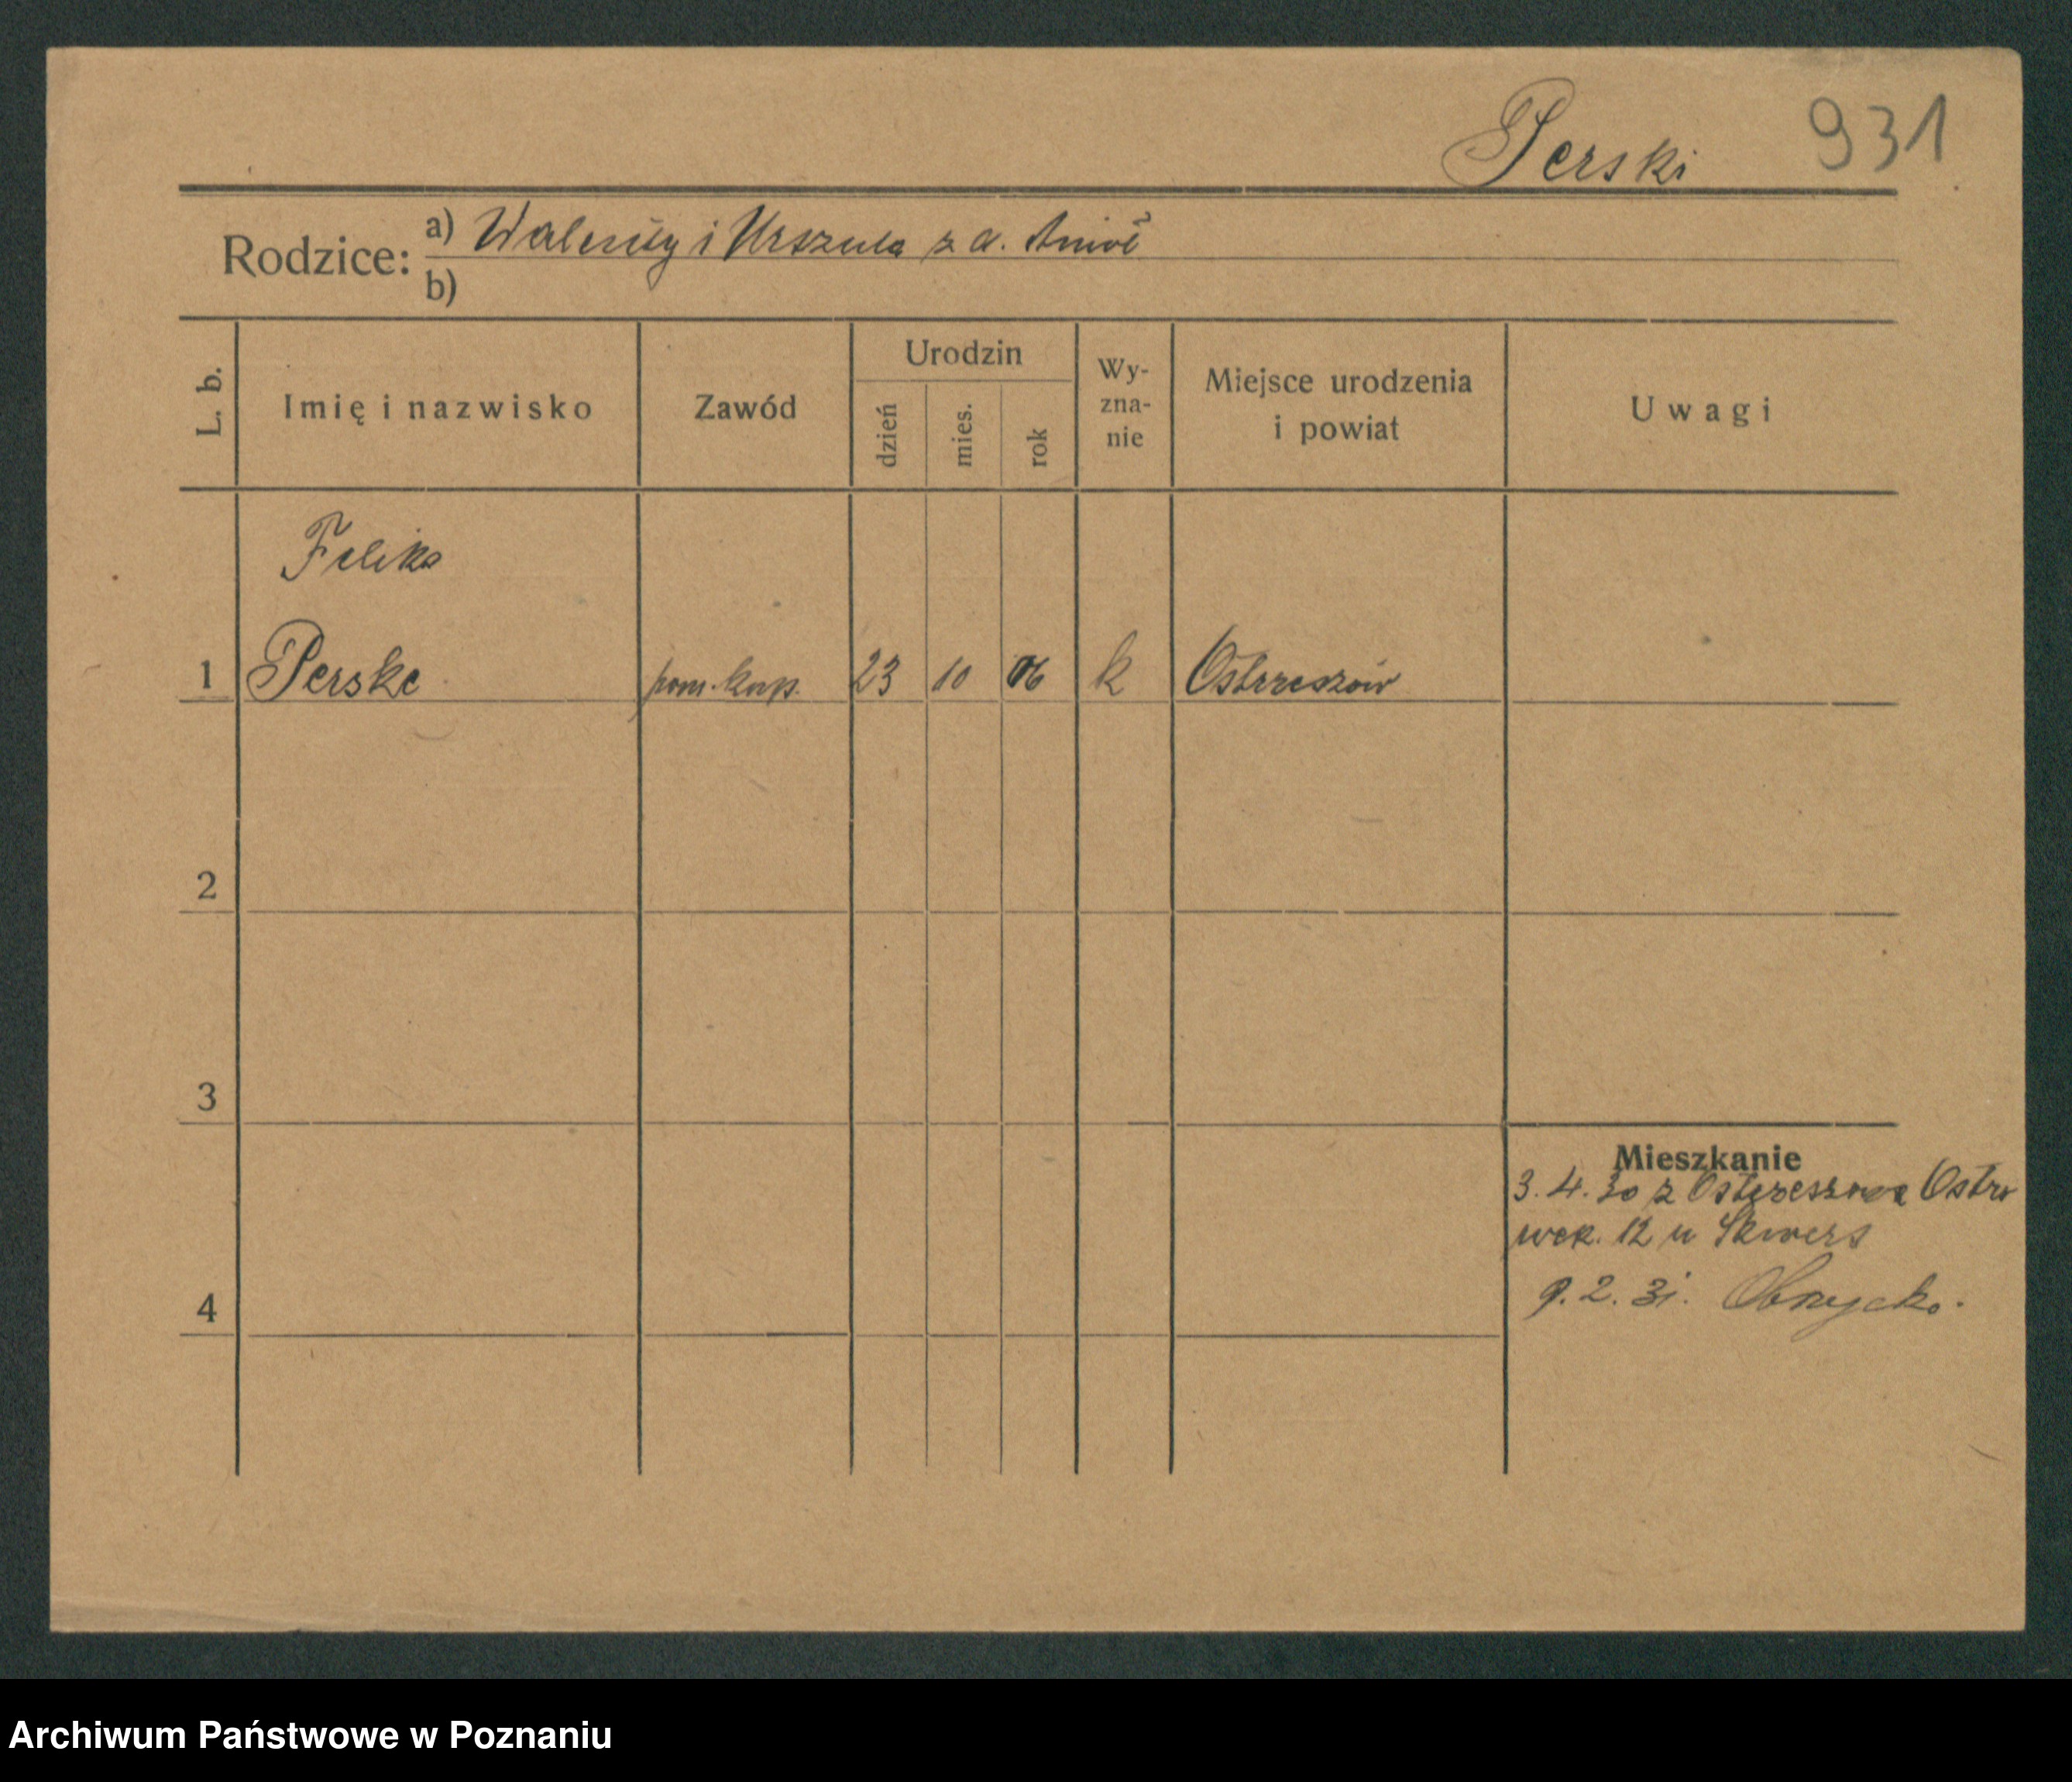 Perski 931
Rodzice: a) Walenty i Urszula z d. Anioł
b)
L. b. Imię i nazwisko Zawód Urodzin dzień mies. rok Wy-zna-nie Miejsce urodzenia i powiat Uwagi
Feliks
1 Perske pom. kup. 23 10 06 k Ostrzeszów
2
3
Mieszkanie
3. 4. 30 z Ostrzeszowa Ostro
wek. 12 u Skwers
9. 2. 31. Obrzycko.
4
Archiwum Państwowe w Poznaniu